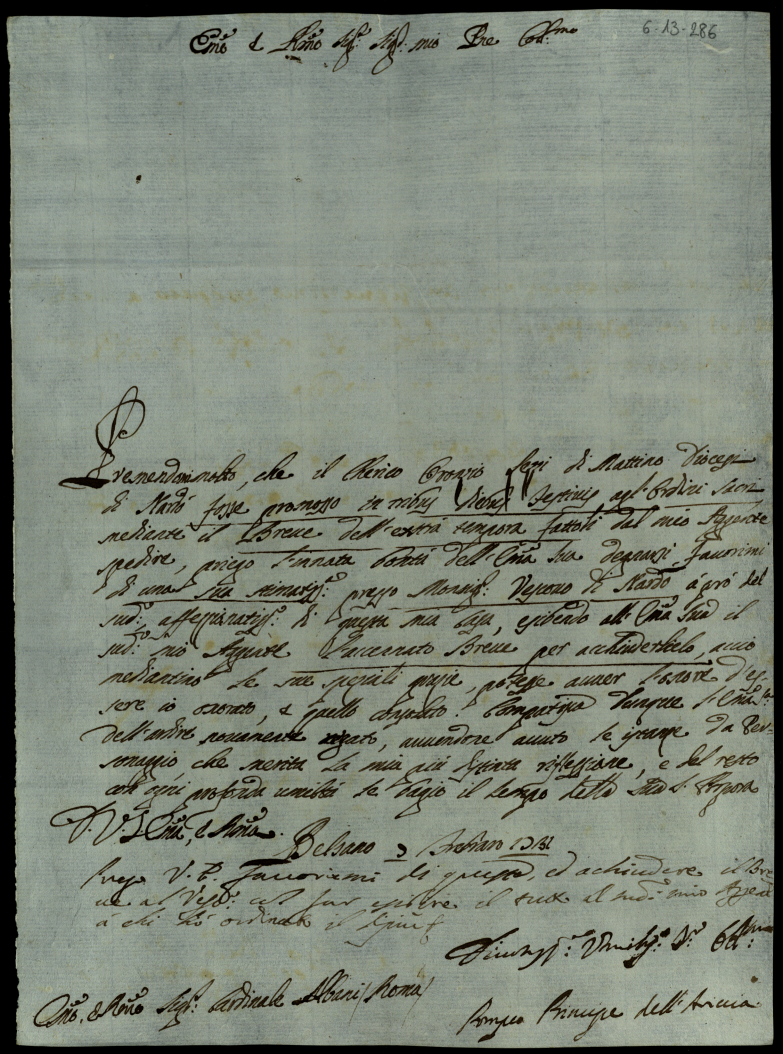 6-13-286
Emo e Rmo Sigr: Sigr: mio Pne Coll:mo
Premendomi molto, che il Clerico Oronzio di Mattino Diocesi
di Nardò fosse promosso in tribus diebus festivis agl'Ordini Sacri
mediante il Breve dell'extra tempora fattoli dal mio Aggente
spedire, priego l'innata bontà dell'Ema Sua degnarsi favorirmi
di una sua stimatis:a presso Monsigr: Vescovo di Nardò à prò del
sud:o affezzionatis:o di questa mia Casa, esibendo all'Ema Sua il
sud:o mio Aggente l'accennato Breve per acchiuderlo, acciò
mediantino le sue speciali grazie, potesse avver l'onore d'es-
sere io onorato, e quello consolato. Compatisca dunque l'Ema Sa:
dell'ardire novamente avvendone avuto le istanze da Per-
sonaggio che merita la mia più distinta riflessione, e del resto
con ogni profonda umiltà le bagio il lembo della Sua S. Porpora
D. V. Ema, e Rma
Belsano 3
Prego V. E. favorirmi di questa, ed achiudere il Bre-
ve al Vesc: il tutto al sud: mio Aggente
à chi hò ordinato il
Divotiss:o Umilis:o Sr:
Emo, e Rmo Sigr: Cardinale Albani (Roma)
Pompeo Principe dell'Ariccia